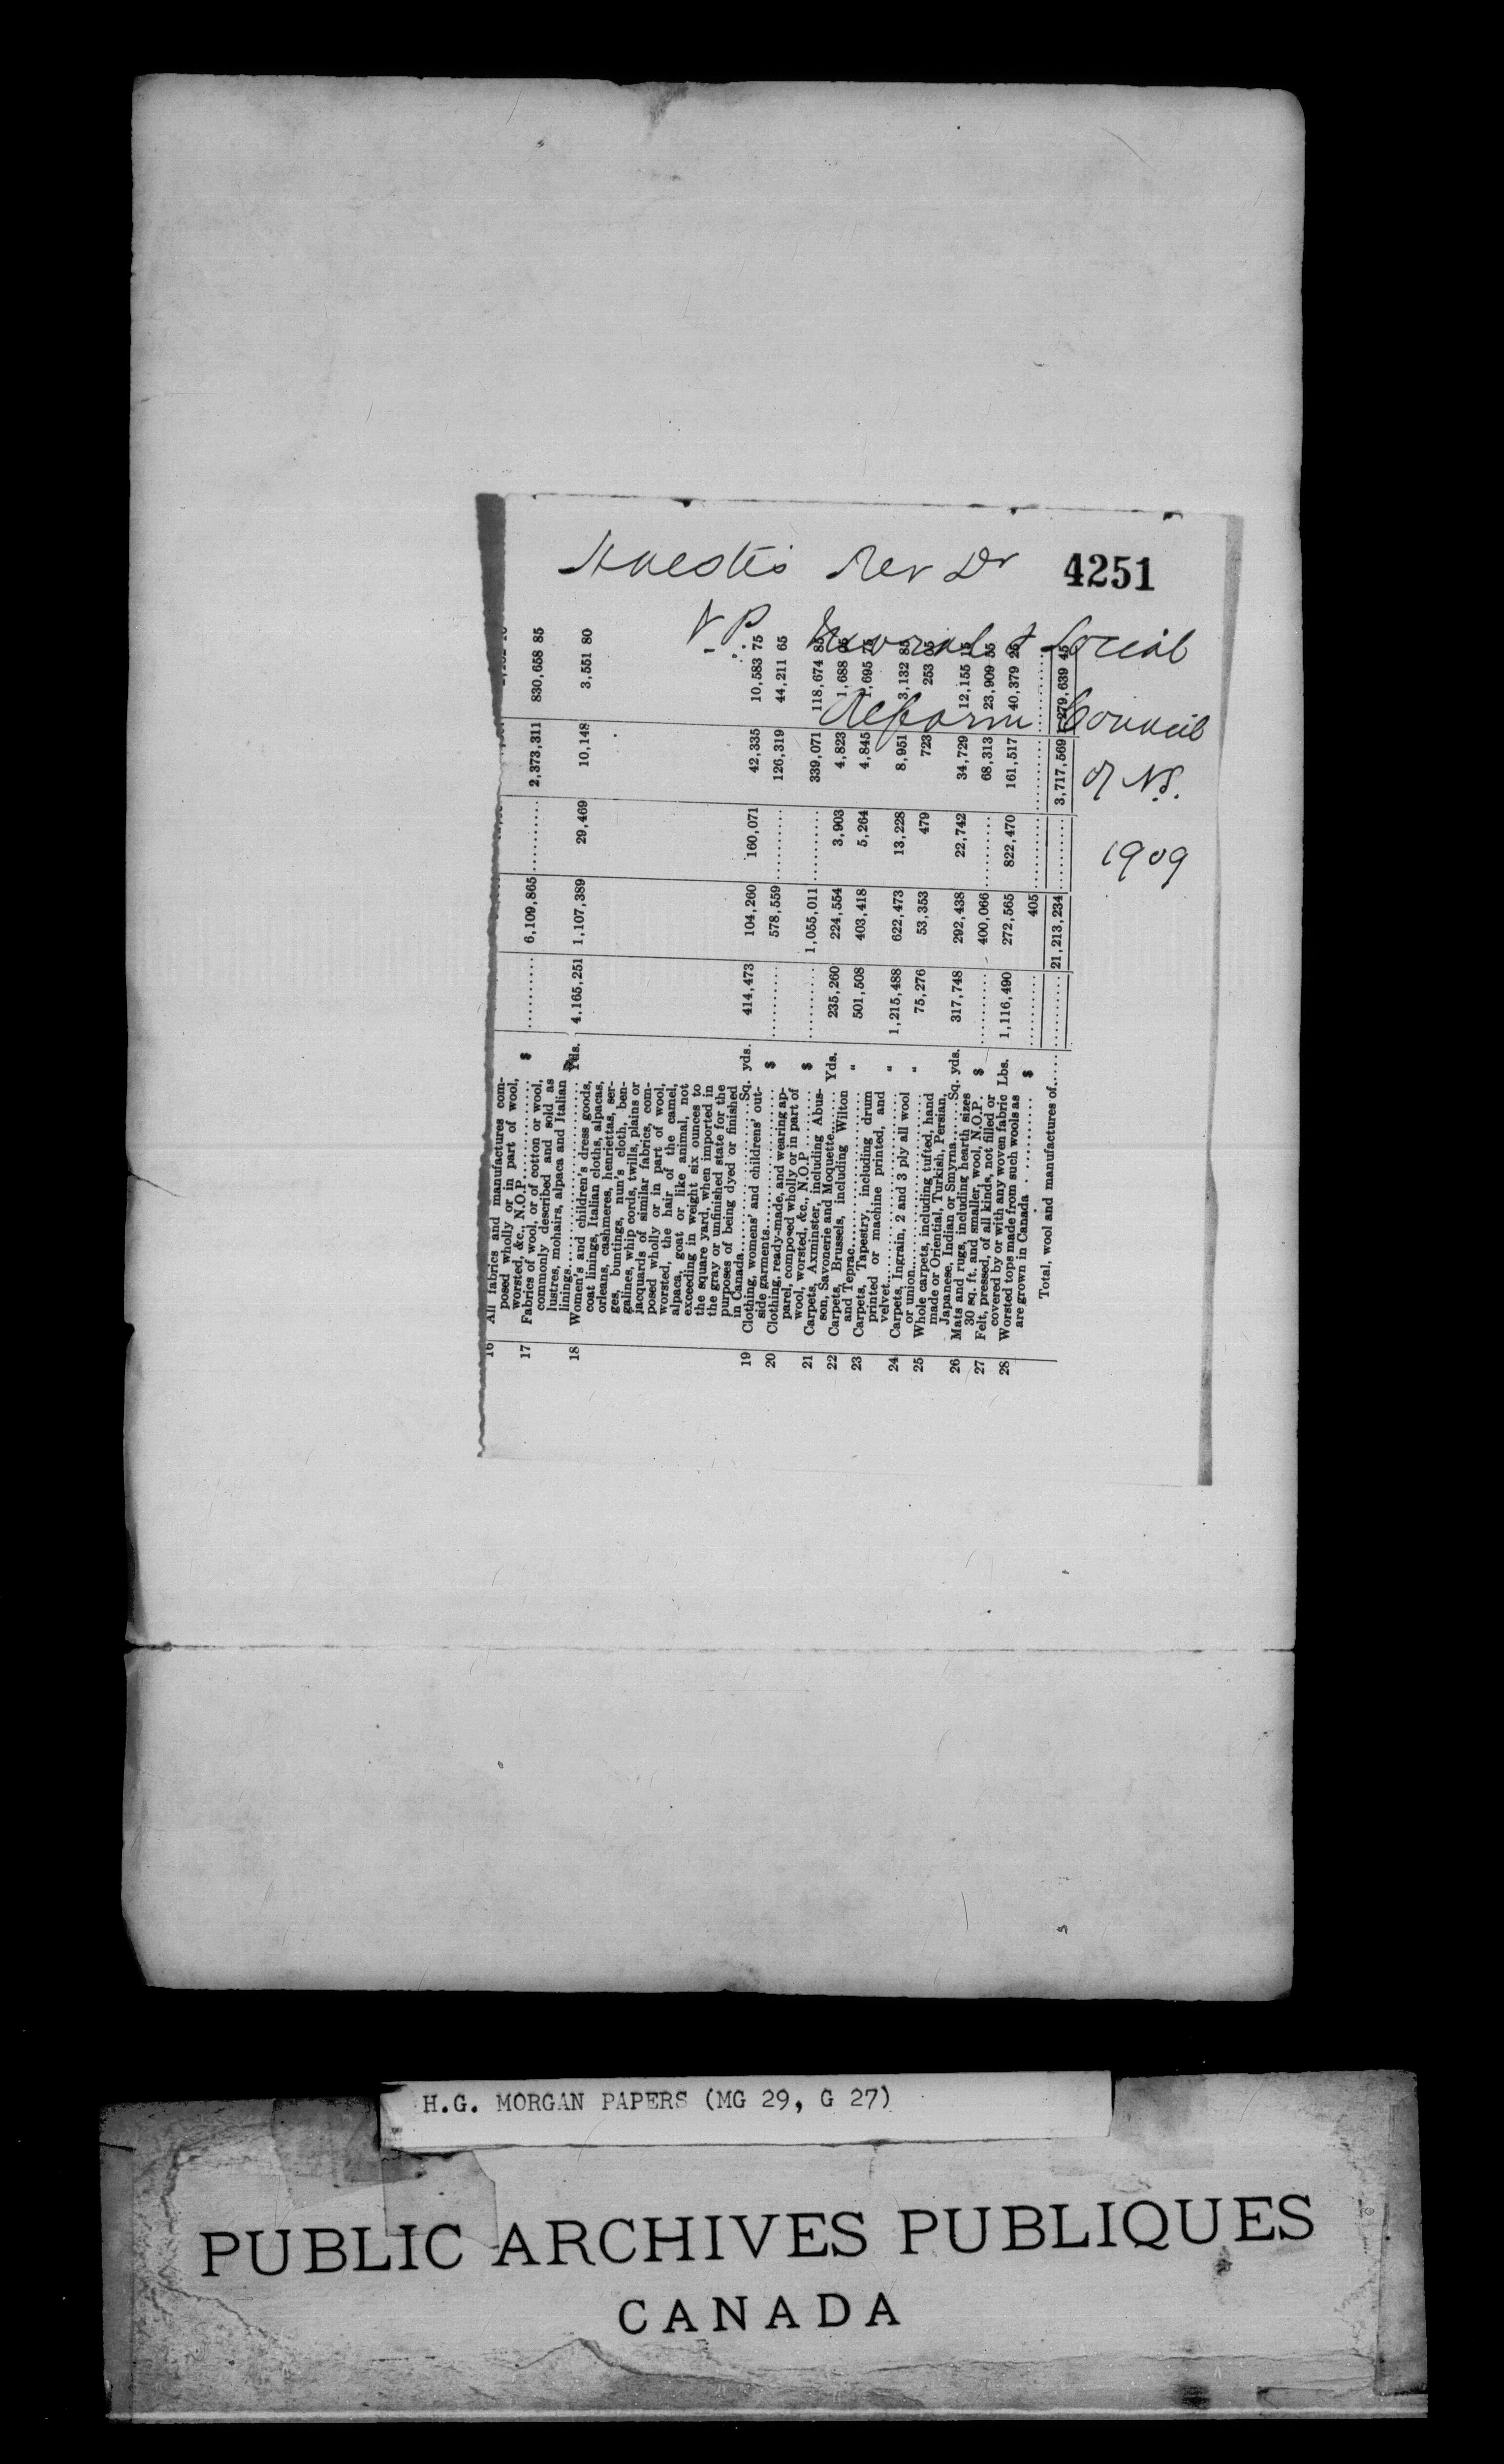 Huestis Rev Dr
4251
V.P. Moral & Social
Reform Council
of N.S.
1909
16 All fabrics and manufactures com-
posed wholly or in part of wool,
worsted, &c., N.O.P. $ 2,373,311 830,658 85
17 Fabrics of wool, or of cotton or wool, 6,109,865
commonly described and sold as
lustres, mohairs, alpaca and Italian
linings Yds. 4,165,251 1,107,389 29,469 10,148 3,551 80
18 Women's and children's dress goods,
coat linings, Italian cloths, alpacas,
orleans, cashmeres, henriettas, ser-
ges, buntings, nun's cloth, ben-
galines, whip cords, twills, plains or
jacquards of similar fabrics, com-
posed wholly or in part of wool,
worsted, the hair of the camel,
alpaca, goat or like animal, not
exceeding in weight six ounces to
the square yard, when imported in
the gray or unfinished state for the
purposes of being dyed or finished
in Canada Sq. yds. 414,473 104,260 160,071 42,335 10,583 75
19 Clothing, womens' and childrens' out-
side garments $ 578,559 126,319 44,211 65
20 Clothing, ready-made, and wearing ap-
parel, composed wholly or in part of
wool, worsted, &c., N.O.P $ 1,055,011 339,071 118,674 85
21 Carpets, Axminster, including Abus-
son, Savonerie and Moquette Yds. 235,260 224,554 3,903 4,823 1,688
22 Carpets, Brussels, including Wilton
and Teprac " 501,508 403,418 5,264 4,845 1,695 75
23 Carpets, Tapestry, including drum
printed or machine printed, and
velvet " 1,215,488 622,473 13,228 8,951 3,132 85
24 Carpets, Ingrain, 2 and 3 ply all wool
or union " 75,276 53,353 479 723 253
25 Whole carpets, including tufted, hand
made or Oriental, Turkish, Persian,
Japanese, Indian or Smyrna Sq. yds. 317,748 292,438 22,742 34,729 12,155 15
26 Mats and rugs, including hearth sizes
30 sq. ft. and smaller, wool, N.O.P. $ 400,066 68,313 23,909 55
27 Felt, pressed, of all kinds, not filled or
covered by or with any woven fabric Lbs. 1,116,490 272,565 822,470 161,517 40,379 25
28 Worsted tops made from such wools as
are grown in Canada $ 405
Total, wool and manufactures of 21,213,234 3,717,569 1,279,639 45
H.G. MORGAN PAPERS (MG 29, G 27)
PUBLIC ARCHIVES PUBLIQUES
CANADA